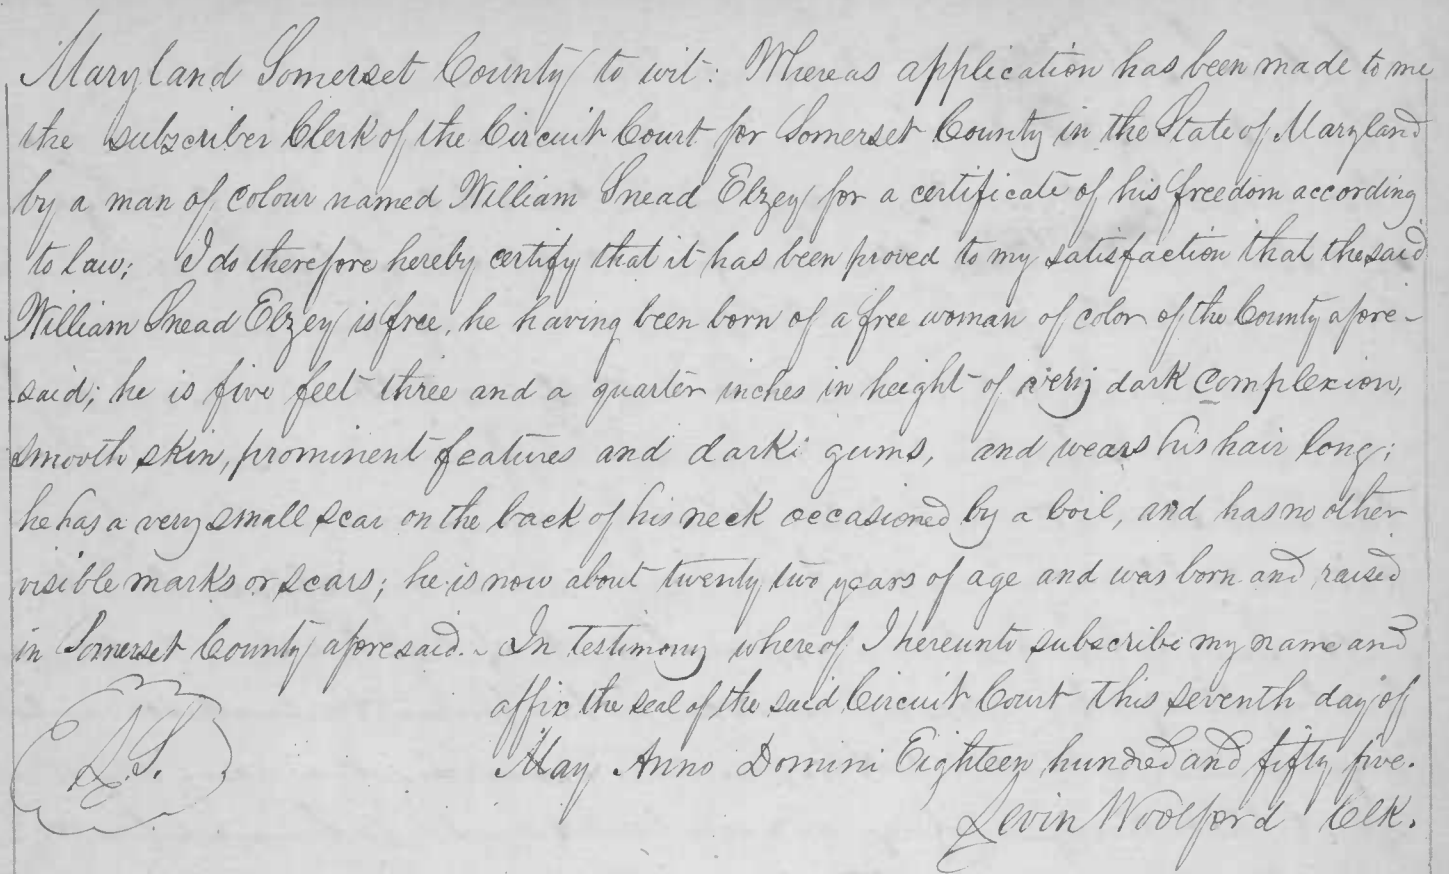 Maryland Somerset County to wit: Whereas application has been made to me
the subscriber Clerk of the Circuit Court for Somerset County in the State of Maryland
by a man of colour named William Snead Elzey for a certificate of his freedom according
to law; I do therefore hereby certify that it has been proved to my satisfaction that the said
William Snead Elzey is free, he having been born of a free woman of color of the County afore-
said; he is five feet three and a quarter inches in height of very dark complexion,
smooth skin, prominent features and dark gums, and wears his hair long;
he has a very small scar on the back of his neck occasioned by a boil, and has no other
visible marks or scars; he is now about twenty two years of age and was born and raised
in Somerset County aforesaid. - In testimony whereof I hereunto subscribe my name and
affix the seal of the said Circuit Court this seventh day of
L.S.
May Anno Domini Eighteen hundred and fifty five.
Levin Woolford Clk.